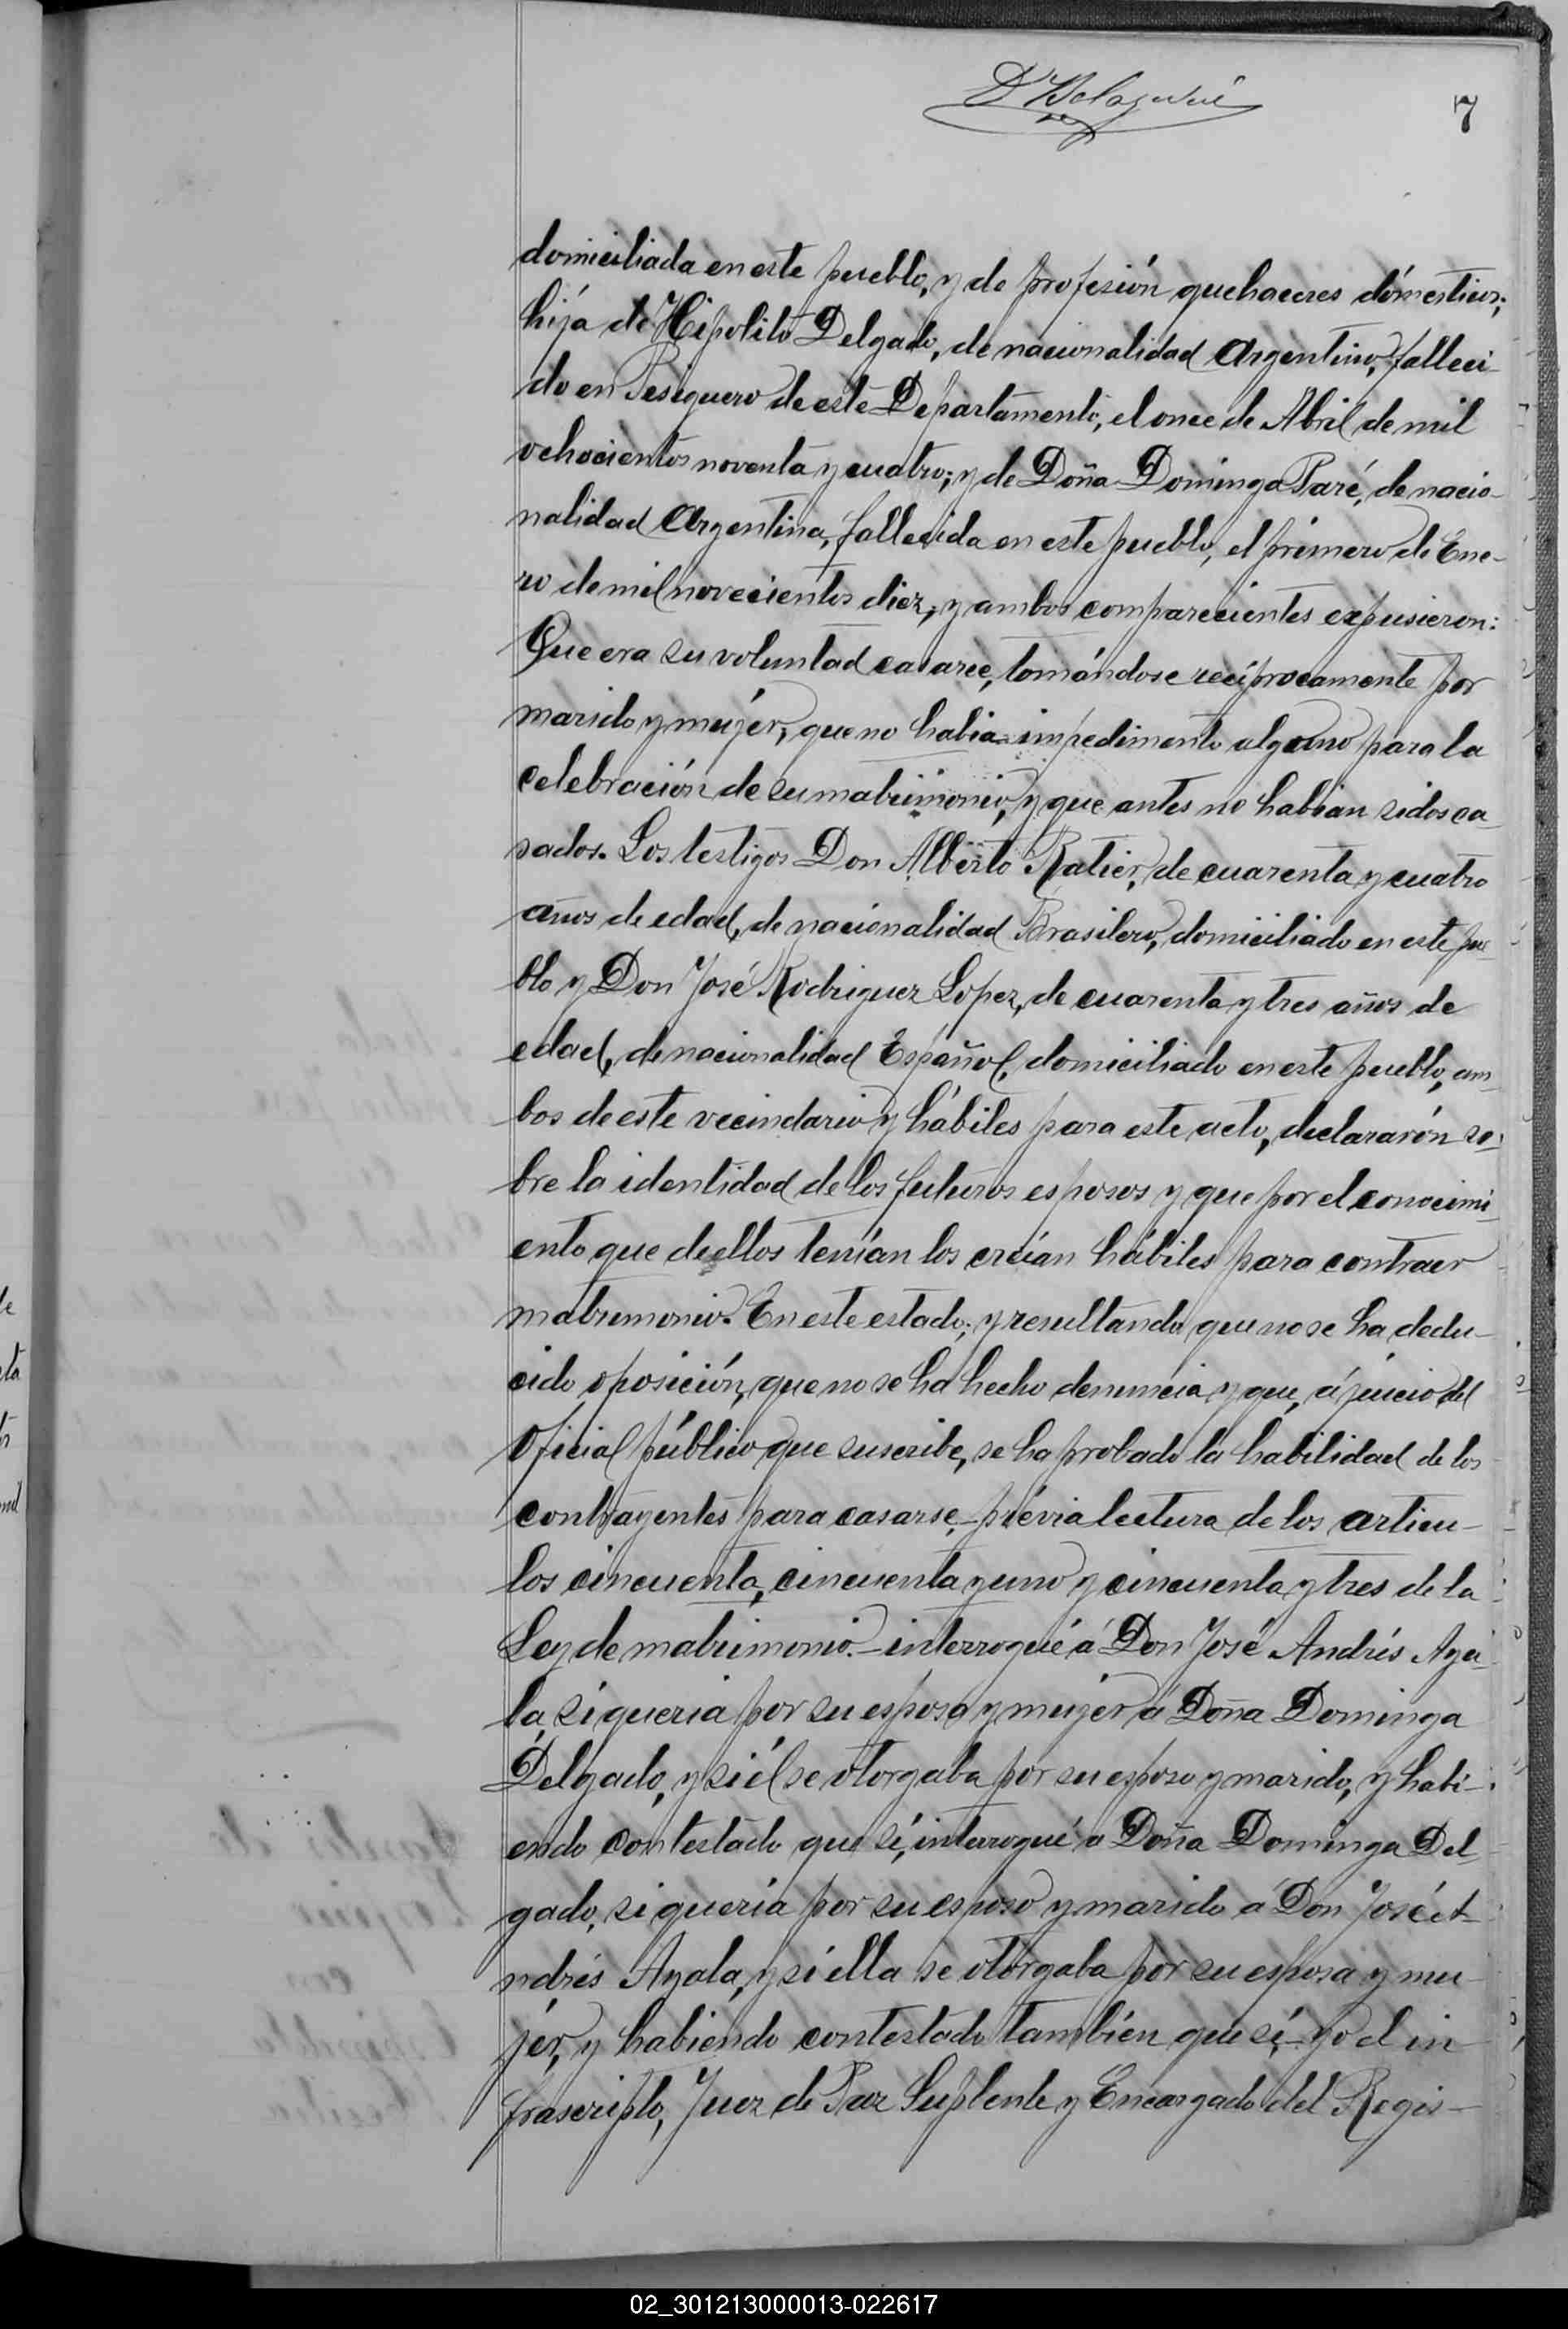 7
domiciliada en este pueblo, y de profesión quehaceres dómesticos;
hija de Hipolito Delgado, de nacionalidad Argentino, falleci-
do en Pesiguero de este Departamento, el once de Abril de mil
ochocientos noventa y cuatro; y de Doña Dominga Paré, de nacio-
nalidad Argentina, fallecida en este pueblo, el primero de Ene-
ro de mil novecientos diez; y ambos comparecientes expusieron:
Que era su voluntad casarce, tomándose recíprocamente por
marido y mujér, que no habia impedimento alguno para la
celebración de su matrimonio, y que antes no habian sidos ca-
sados. Los testigos Don Alberto Ratier, de cuarenta y cuatro
años de edad, de nacionalidad Brasilero, domiciliado en este pue
blo y Don José Rodriguez Lopez, de cuarenta y tres años de
edad, de nacionalidad Español, domiciliado en este pueblo, am-
bos de este vecindario y hábiles para este acto, declararón so-
bre la identidad de los futuros esposos y que por el conocimi-
ento que de ellos tenían los creían hábiles para contraer
matrimonio. En este estado; y resultando que no se ha dedu-
cido oposición, que no se ha hecho denuncia y que, á juicio del
Oficial público que suscribe, se ha probado la habilidad de los
contrayentes para casarse,- prévia lectura de los articu-
los cincuenta, cincuenta y uno y cincuenta y tres de la
Ley de matrimonio.- interrogué á Don José Andrés Aya-
la si queria por su esposa y mujér á Doña Dominga
Delgado, y si él se otorgaba por su esposo y marido, y habi-
endo contestado que sí, interrogué a Doña Dominga Del-
gado, si quería por su esposo y marido á Don José A-
ndrés Ayala, y si ella se otorgaba por su esposa y mu-
jér, y habiendo contestado también que sí,- yo el in-
frascripto, Juez de Paz Suplente y Encargado del Regis-
02_301213000013-022617